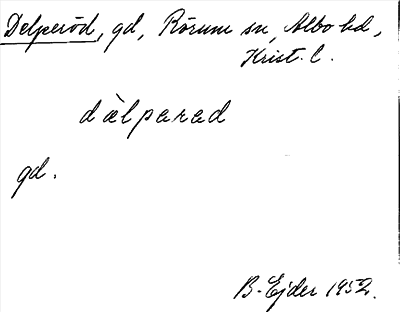 Delperöd, gd, Rörum sn, Albo hd,
Krist. l.
dàlparad
gd.
B. Ejder 1952.